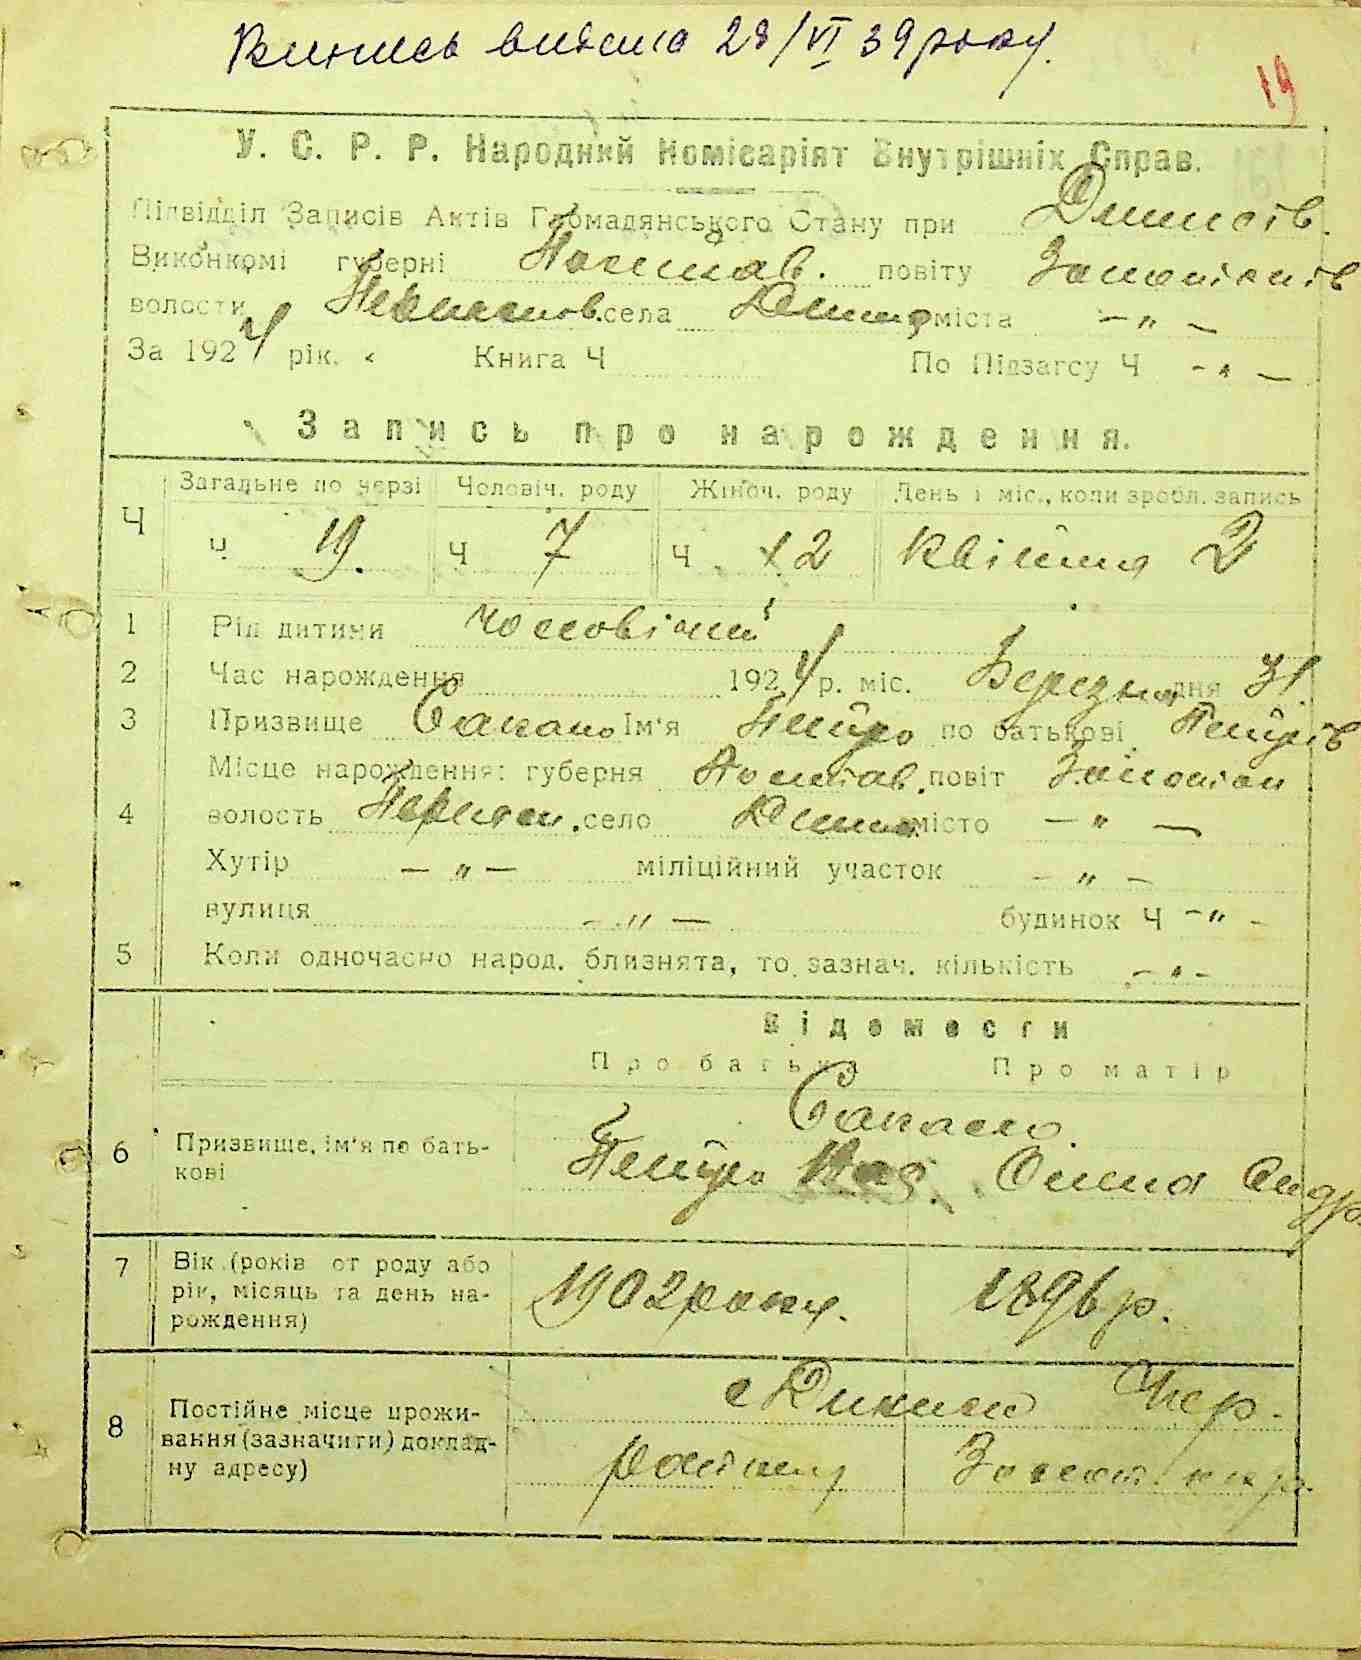 Випись видана 28/VI 39 року.
19
У. С. Р. Р. Народний Комісаріят Внутрішніх Справ.
Підвідділ Записів Актів Громадянського Стану при
Виконкомі губерні Полтав. повіту Золотоніс
волости села міста — " —
За 1924 рік. Книга Ч По Підзагсу Ч - " —
Запись про народження.
Загальне по черзі Чоловіч. роду Жіноч. роду День і міс., коли зробл. запись
Ч Ч 19. Ч 7 Ч 12 Квітня 2
1 Рід дитини чоловічий
2 Час народження 1924 р. міс. Березня дня 31.
3 Призвище Сакало Ім'я Петро по батькові Петрів
Місце народження: губерня Полтав. повіт Золотон
4 волость село місто — " —
Хутір — " — міліційний участок — " —
вулиця — " — будинок Ч — " -
5 Коли одночасно народ. близнята, то зазнач. кількість - " -
Відомости
Про батька Про матір
Сакало.
6 Призвище, ім'я по бать-
кові Петро
7 Вік (років от роду або
рік, місяць та день на-
рождення) 1902 року. 1896 р.
8 Постійне місце прожи-
вання (зазначити) доклад-
ну адресу) с
району Золот. окр.